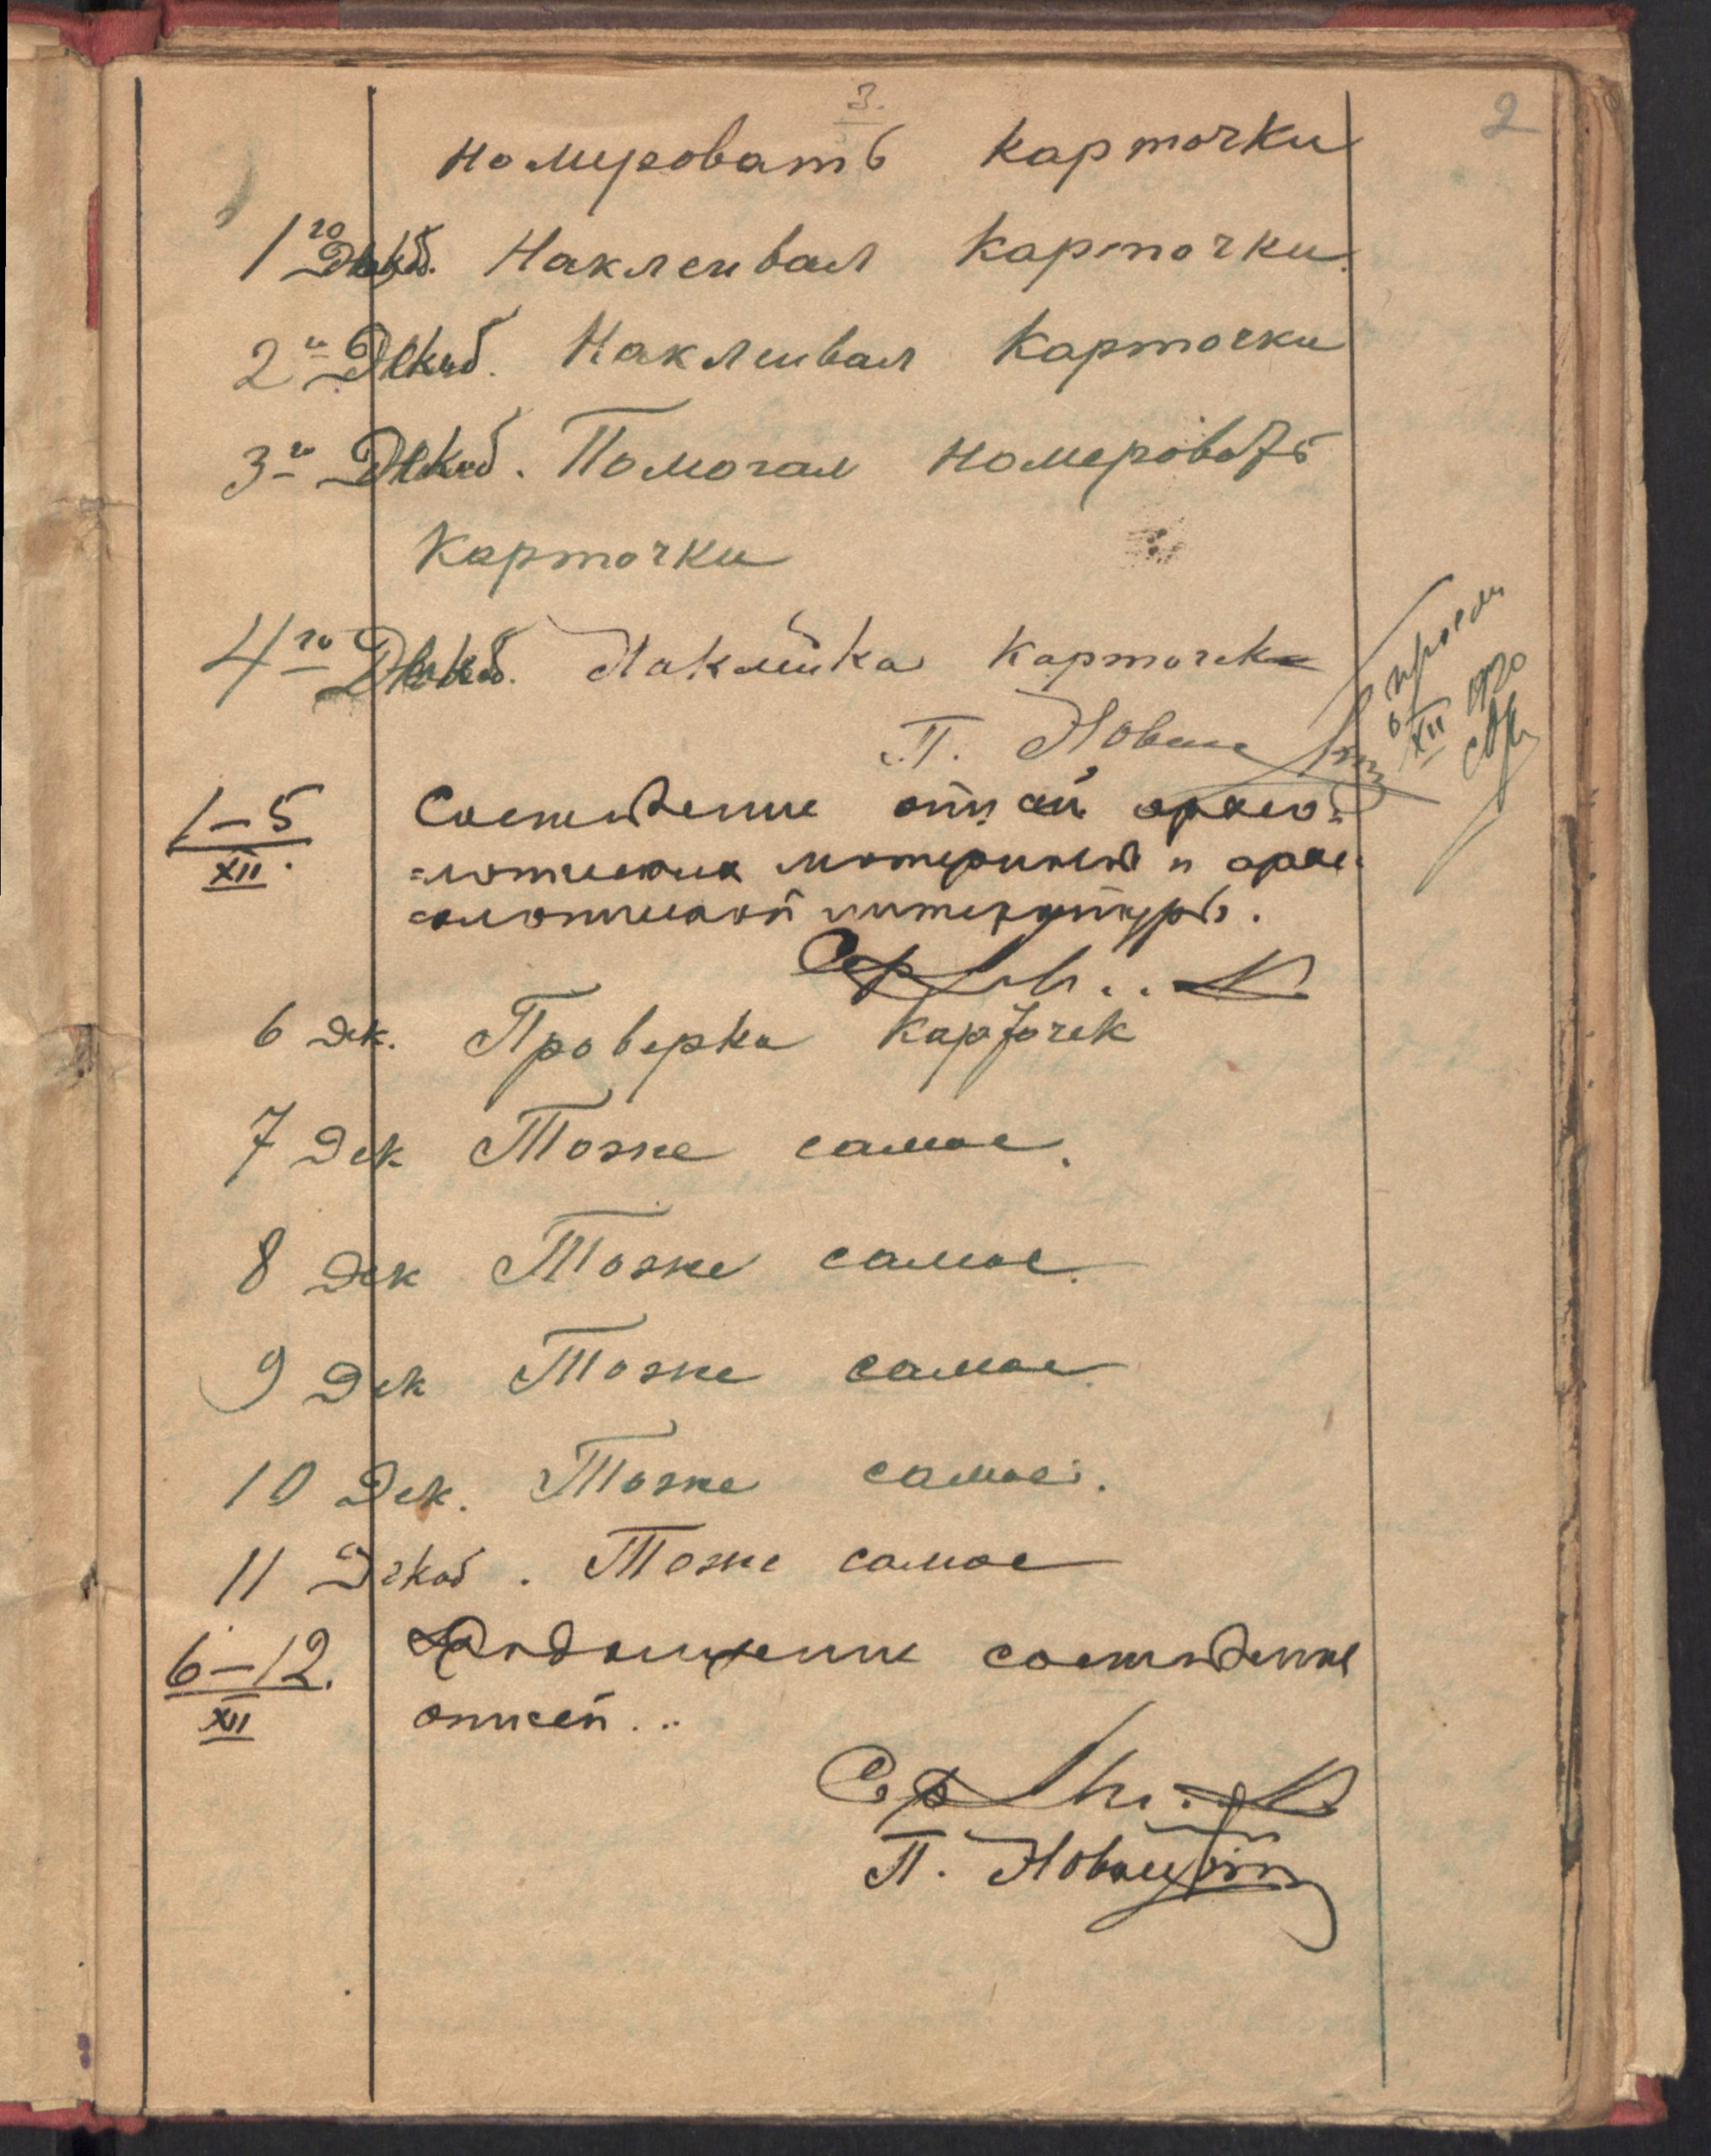 3.
2
номеровать карточки
1го Декаб. Наклеивал карточки.
2го Декаб. Наклеивал карточки
3го Декаб. Помогал номеровать
карточки
4го Декаб. Наклейка карточек
П. Новицкий
6/XII 1920
1–5/XII.
Составление описей архео-
=логических материалов и архе-
ологической литературы.
6 дек. Проверка карточек
7 Дек Тоже самое.
8 Дек Тоже самое.
9 Дек Тоже самое.
10 Дек. Тоже самое.
11 Декаб. Тоже самое
6–12./XII
Продолжение составления
описей...
П. Новицкий